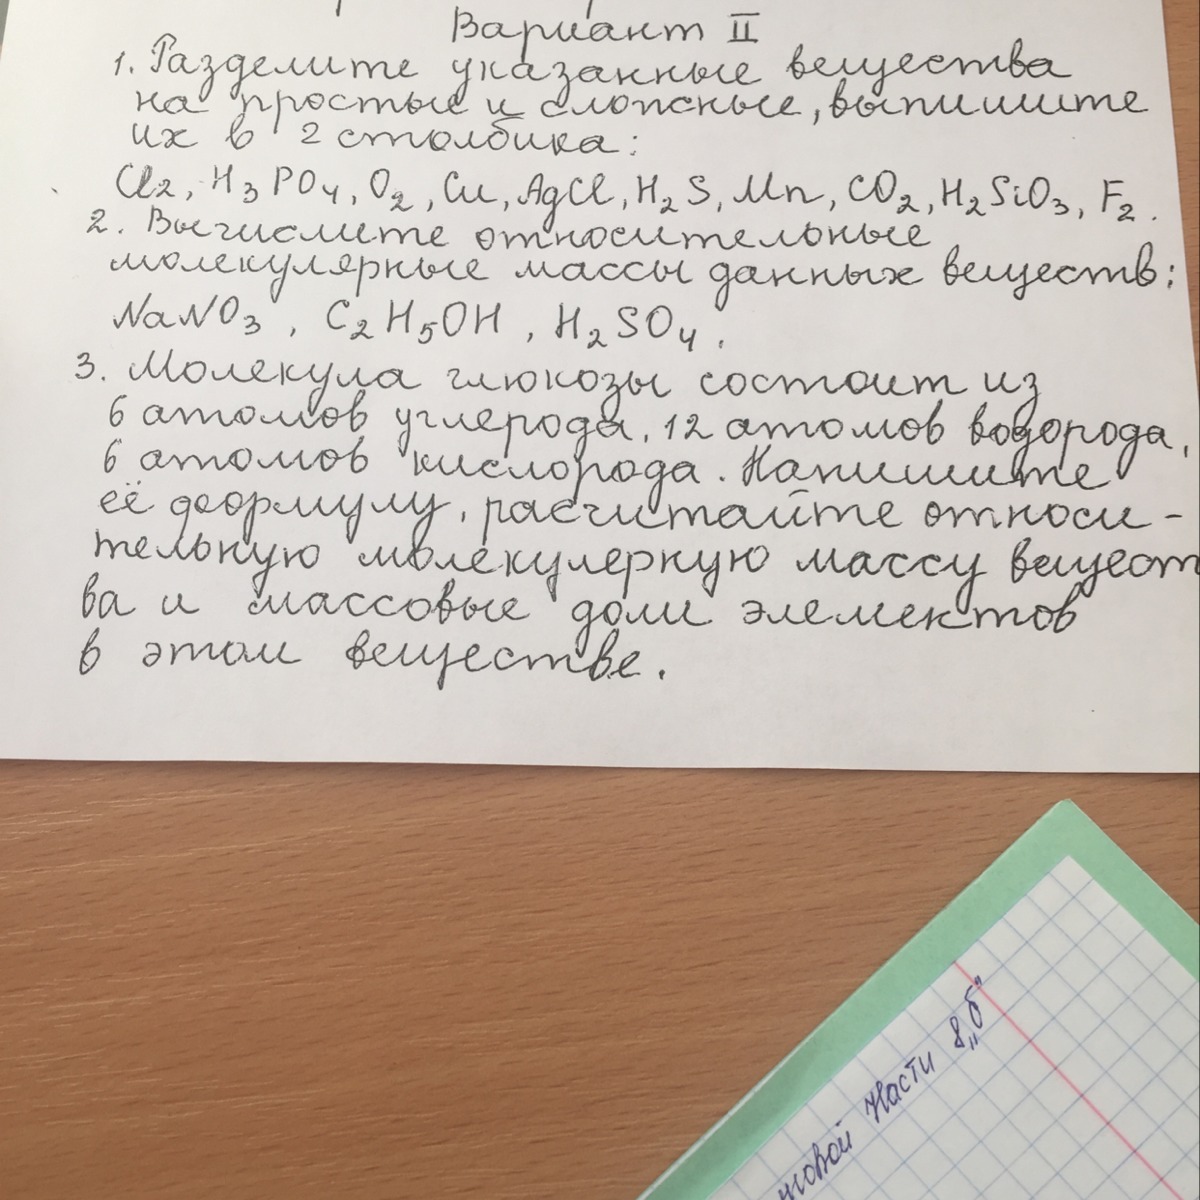 Вариант II
1. Разделите указанные вещества
на простые и сложные, выпишите
их в 2 столбика:
Cl2, H3PO4, O2, Cu, AgCl, H2S, Mn, CO2, H2SiO3, F2.
2. Вычислите относительные
молекулярные массы данных веществ:
NaNO3, C2H5OH, H2SO4.
3. Молекула глюкозы состоит из
6 атомов углерода, 12 атомов водорода,
6 атомов кислорода. Напишите
её формулу, расчитайте относи-
тельную молекулеркую массу вещест
ва и массовые доли элементов
в этом веществе.
Насти 8 „б"